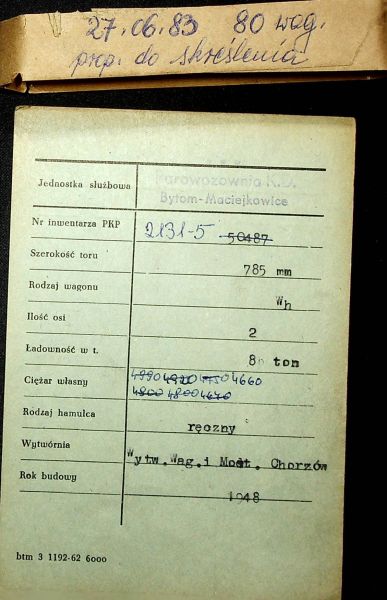 27.06.83 80 wag.
prp. do skreślenia
Jednostka służbowa Parowozownia K.D.
Bytom-Maciejkowice
Nr inwentarza PKP 2131-5 50487
Szerokość toru 785 mm
Rodzaj wagonu Wh
Ilość osi 2
Ładowność w t. 8 ton
Ciężar własny 4990 4920 4750 4660
4800 4800 4670
Rodzaj hamulca ręczny
Wytwórnia Wytw.Wag.i Most. Chorzów
Rok budowy 1948
btm 3 1192-62 6000